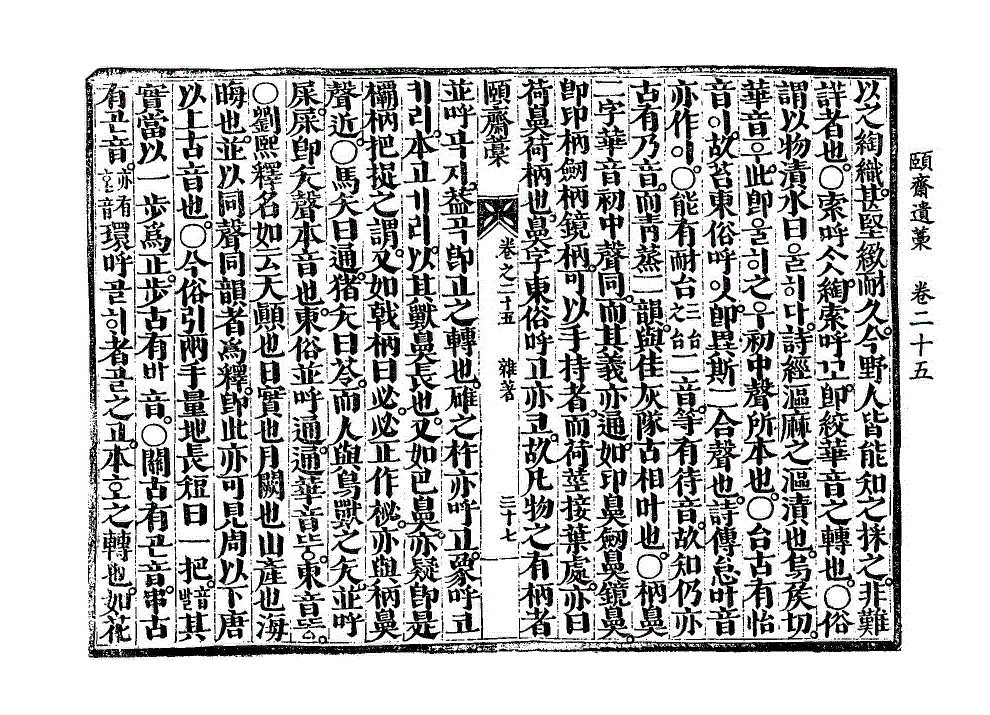 頤齋遺藁 卷二十五
以之綯織甚堅緻耐久今野人皆能知之採之非難
詳者也○索呼仐綯索呼고卽絞華音之轉也○俗
謂以物漬水曰울히다詩經漚麻之漚漬也烏族切
華音ᄋᆍ此卽울히之ᄋᆍ初中聲所本也○台古有怡
音이故苔東俗呼잇卽異斯二合聲也詩傳怠叶音
亦作이○能有耐台三台之台二音等有待音故知仍亦
古有乃音而靑蒸一韻與佳灰隊古相叶也○柄鼻
二字華音初中聲同而其義亦通如印鼻劒鼻鏡鼻
卽印柄劒柄鏡柄可以手持者而荷莖接葉處亦曰
荷鼻荷柄也鼻字東俗呼고亦코故凡物之有柄者
頤齋藁 卷之二十五 雜著 三十七
並呼ᄭᅩ지盖ᄭᅩ卽고之轉也碓之杵亦呼고象呼코
키리本고기리以其獸鼻長也又如巴鼻亦疑卽是
欛柄把捉之謂又如戟柄曰必必正作柲亦與柄鼻
聲近○馬矢曰通猪矢曰苓而人與鳥獸之矢並呼
屎屎卽矢聲本音也東俗並呼通通華音ᄯᅮᆼ東音ᄯᅩᆼ
○劉熙釋名如云天顯也日實也月闕也山產也海
晦也並以同聲同韻者爲釋卽此亦可見周以下唐
以上古音也○今俗引兩手量地長短曰一把音발其
實當以一步爲正步古有바音○關古有곤音串古
有곤音亦有호音環呼골히者골之고本호之轉也如花